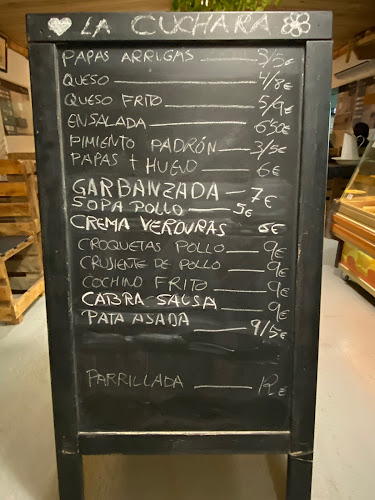 LA CUCHARA
PAPAS ARRUGAS 3/5€
QUESO 4/8€
QUESO FRITO 5/9€
ENSALADA 6'50€
PIMIENTO PADRÓN 3/5€
PAPAS + HUEVO 6€
GARBANZADA 7€
SOPA POLLO 5€
CREMA VERDURAS 6€
CROQUETAS POLLO 9€
CRUJIENTE DE POLLO 9€
COCHINO FRITO 9€
CABRA SALSA 9€
PATA ASADA 9/5€
PARRILLADA 12€